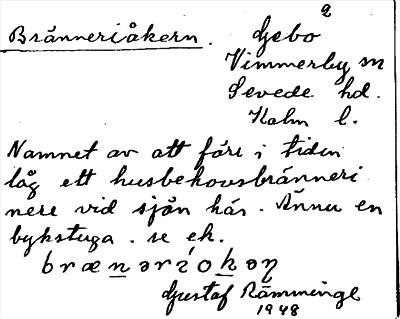 Bränneriåkern. Gebo 2
Vimmerby sn
Sevede hd.
Kalm l.
Namnet av att före i tiden
låg ett husbehovsbränneri
nere vid sjön här. Ännu en
bykstuga. se ek.
Gustaf Rämminge
1948